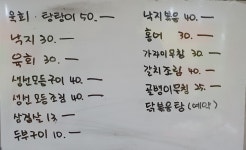 육회·탕탕이 50.—
낙지 30.—
육회 30.—
생선모듬구이 40.—
생선모듬조림 40.—
삼겹살 13.—
두부구이 10.—
낙지볶음 40.—
홍어 30.—
가자미무침 30.—
갈치조림 40.—
골뱅이무침 25.—
닭볶음탕 (예약)